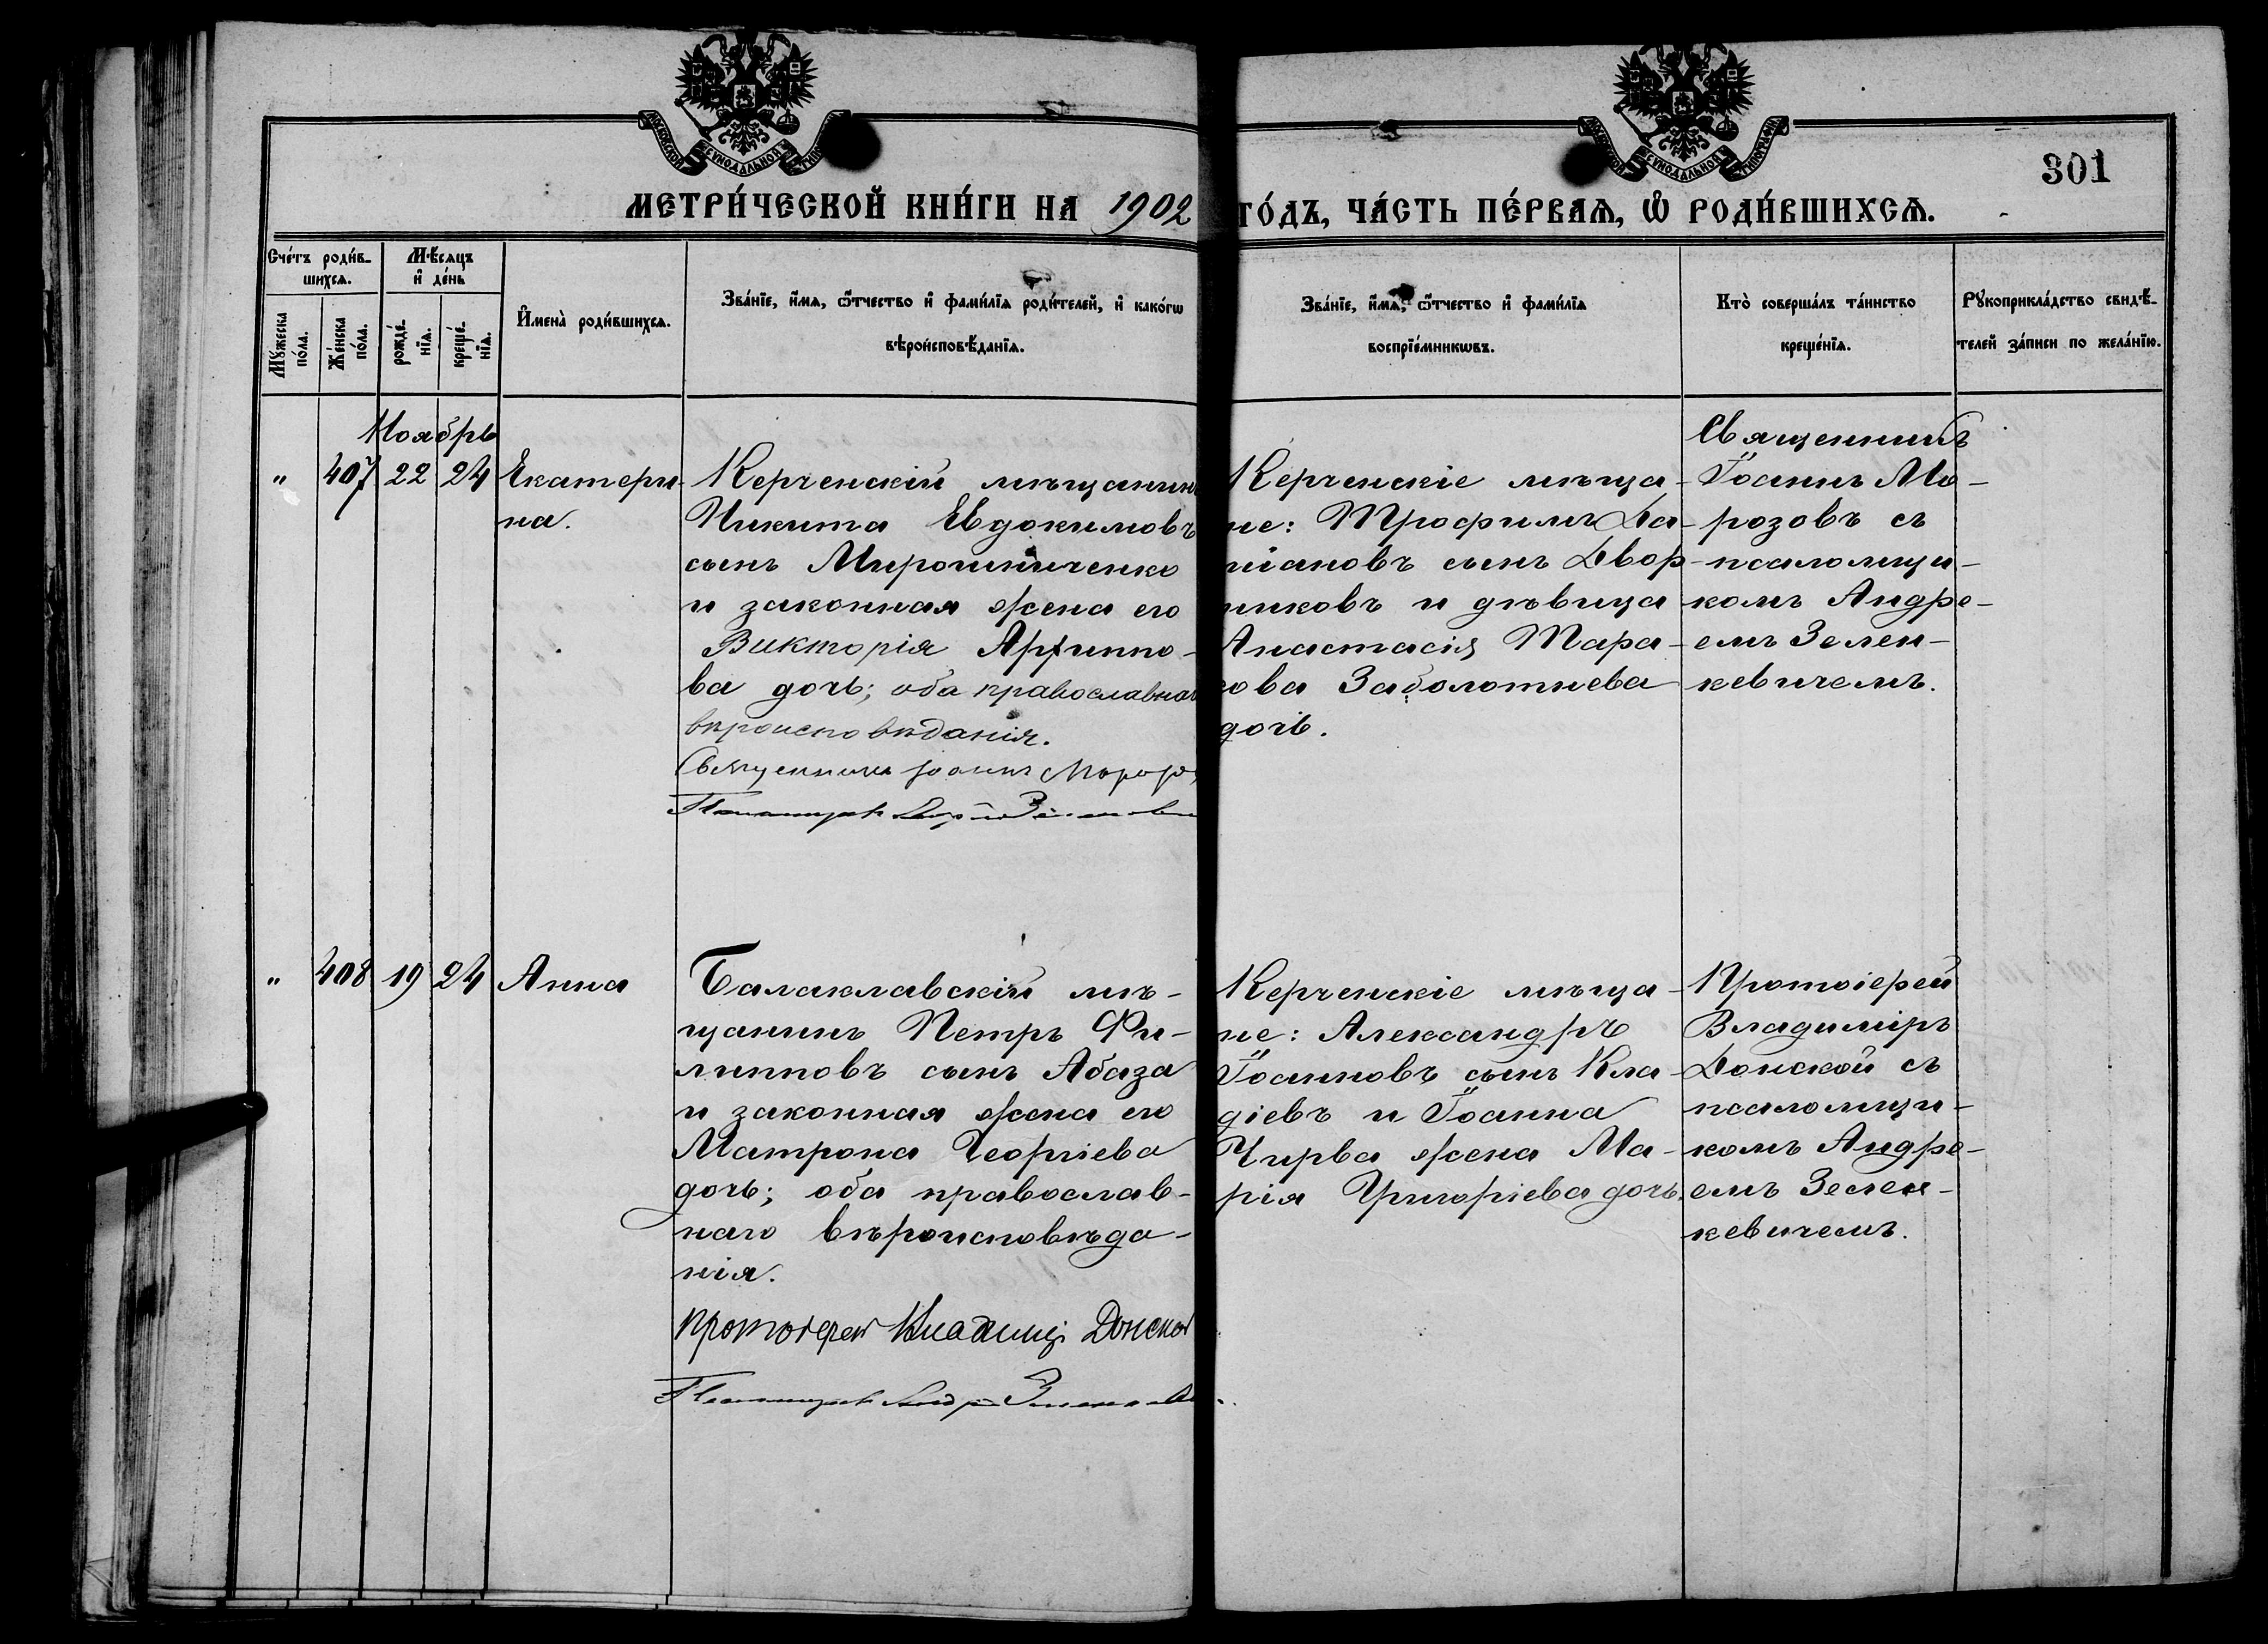 МОСКОВСКОЙ СѴНОДАЛЬНОЙ ТИПО
МОСКОВСКОЙ СѴНОДАЛЬНОЙ ТИПОГРАФІИ
301
МЕТРИ́ЧЕСКОЙ КНИ́ГИ НА 1902
ГО́ДЪ, ЧА́СТЬ ПЕ́РВАѦ, Ѡ҆ РОДИ́ВШИХСѦ.
Сче́тъ роди́в-
шихсѧ.
Мѣ́сѧцъ
и҆ де́нь
Мꙋ́жеска
по́ла.
Же́нска
по́ла.
рожде́-
нїѧ.
креще́-
нїѧ.
И҆мена̀ роди́вшихсѧ.
Зва́нїе, и҆́мѧ, ѻ҆́тчество и҆ фами́лїѧ роди́телей, и҆ како́гѡ
вѣроисповѣ́данїѧ.
Зва́нїе, и҆́мѧ, ѻ҆́тчество и҆ фами́лїѧ
воспрїе́мникѡвъ.
Кто̀ соверша́лъ та́инство
креще́нїѧ.
Рꙋкоприкла́дство свидѣ́-
телей за́писи по жела́нїю.
Ноябрь
" 407 22 24
Екатери-
на.
Керченскій мѣщанинъ
Никита Евдокимовъ
сынъ Мирошниченко
и законная жена его
Викторія Архиппо-
ва дочь; оба православнаго
вѣроисповѣданія.
Священникъ Іоаннъ Мороз
Псаломщикъ Андрей Зеленкеви
Керченскіе мѣща-
не: Трофимъ Да-
міановъ сынъ Двор-
никовъ и дѣвица
Анастасія Тара-
сова Заболотнева
дочь.
Священникъ
Іоаннъ Мо-
розовъ съ
псаломщи-
комъ Андре-
емъ Зелен-
кевичемъ.
" 408 19 24
Анна
Балаклавскій мѣ-
щанинъ Петръ Фи-
липповъ сынъ Абаза
и законная жена его
Матрона Георгіева
дочь; оба православ-
наго вѣроисповѣда-
нія.
Протоіерей Владимір Донской
Псаломщикъ Андрей Зеленкеви
Керченскіе мѣща-
не: Александръ
Іоанновъ сынъ Кла-
діевъ и Іоанна
Чирва жена Ма-
рія Григоріева дочь.
Протоіерей
Владиміръ
Донской съ
псаломщи-
комъ Андре-
емъ Зелен-
кевичемъ.